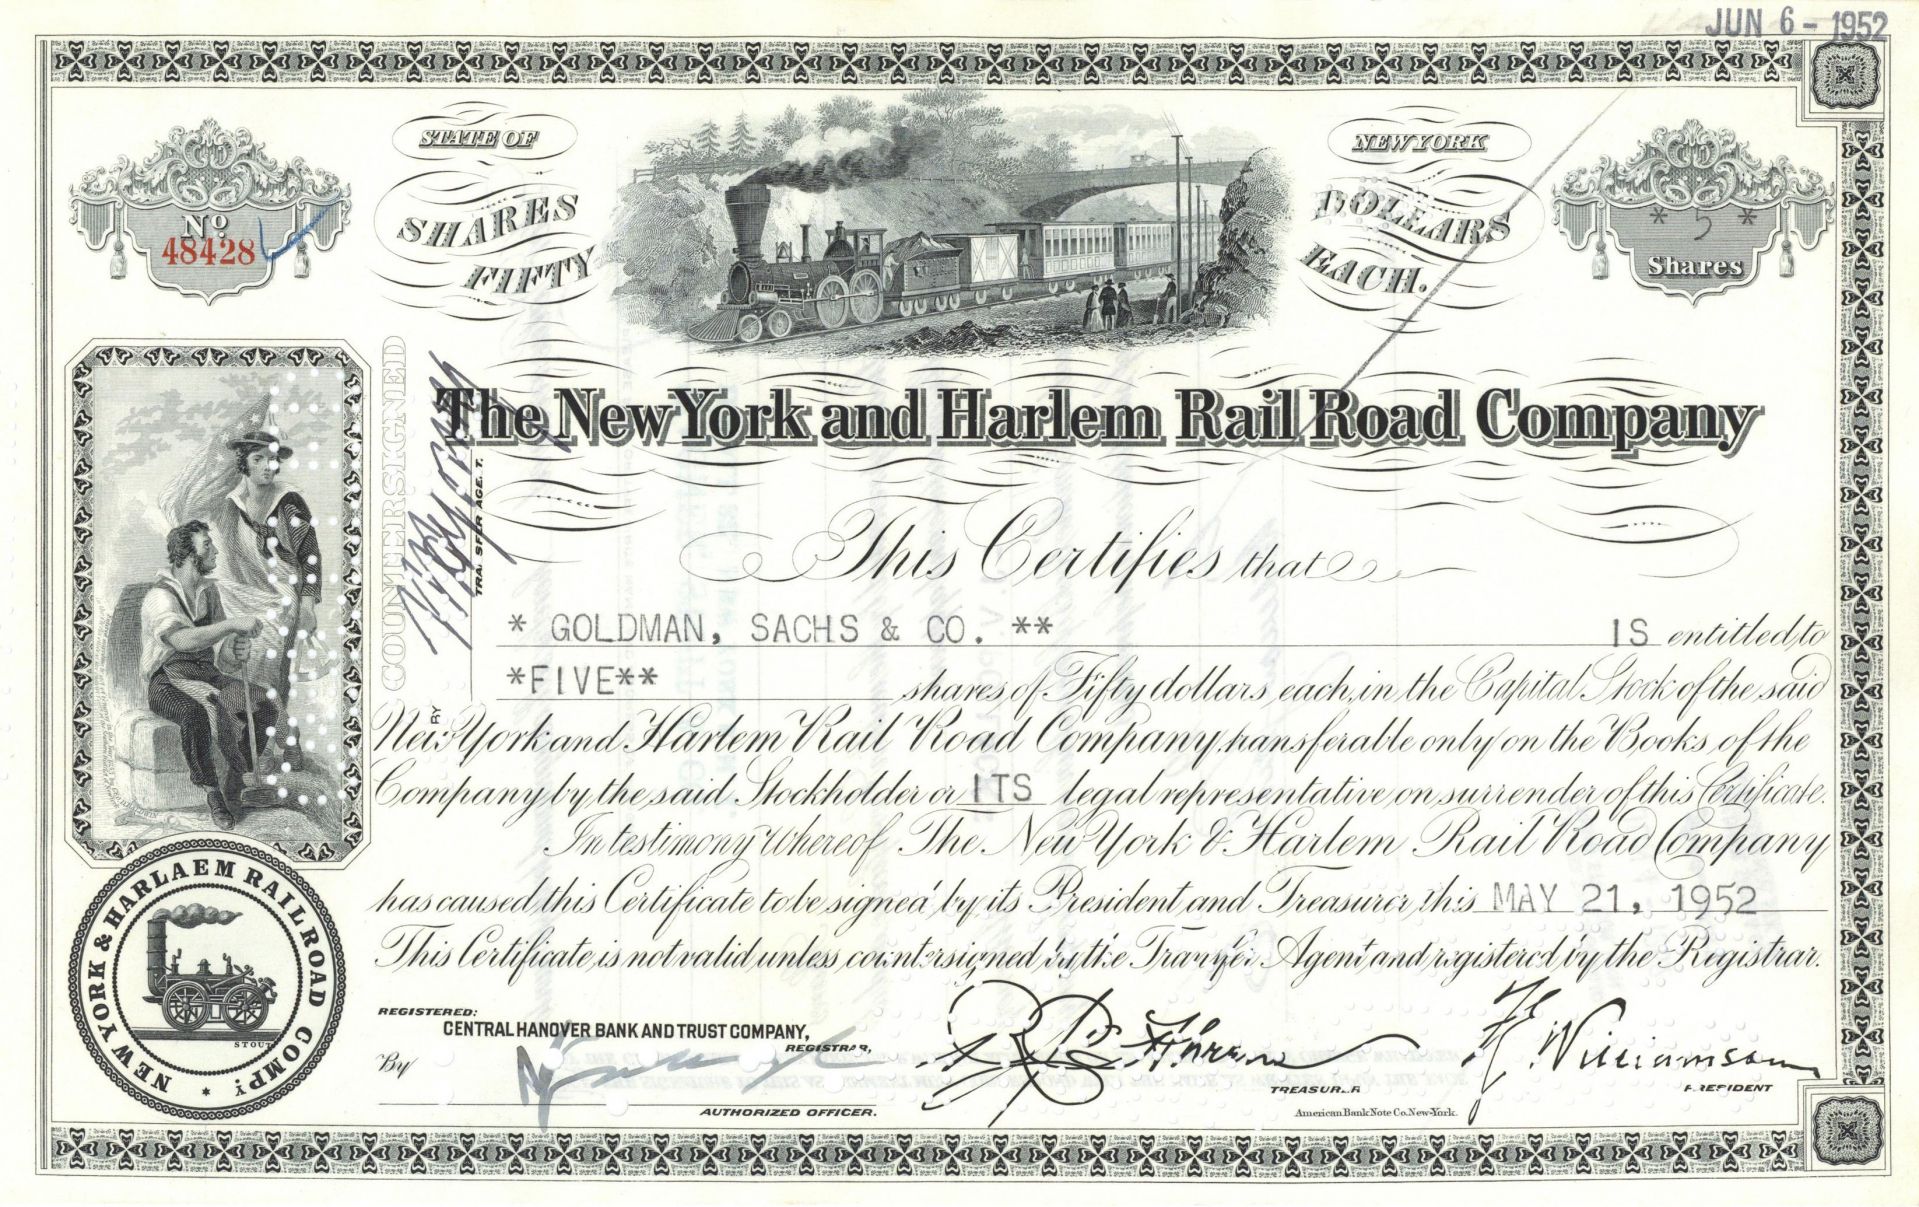 JUN 6 - 1952
STATE OF
NEW YORK
Nº
48428
SHARES
FIFTY
DOLLARS
EACH.
* 5 *
Shares
COUNTERSIGNED
TRANSFER AGENT.
BY
The New York and Harlem Rail Road Company
This Certifies that
* GOLDMAN, SACHS & CO. ** IS entitled to
*FIVE** shares of Fifty dollars each, in the Capital Stock of the said
New York and Harlem Rail Road Company, transferable only on the Books of the
Company by the said Stockholder or ITS legal representative on surrender of this Certificate.
In testimony Whereof The New York & Harlem Rail Road Company
has caused this Certificate to be signed by its President and Treasurer this MAY 21, 1952
This Certificate is not valid unless countersigned by the Transfer Agent and registered by the Registrar.
NEW YORK & HARLAEM RAILROAD COMPY. *
STOUT
REGISTERED:
CENTRAL HANOVER BANK AND TRUST COMPANY,
REGISTRAR,
By
AUTHORIZED OFFICER.
TREASURER
Williamson
PRESIDENT
American Bank Note Co. New-York.